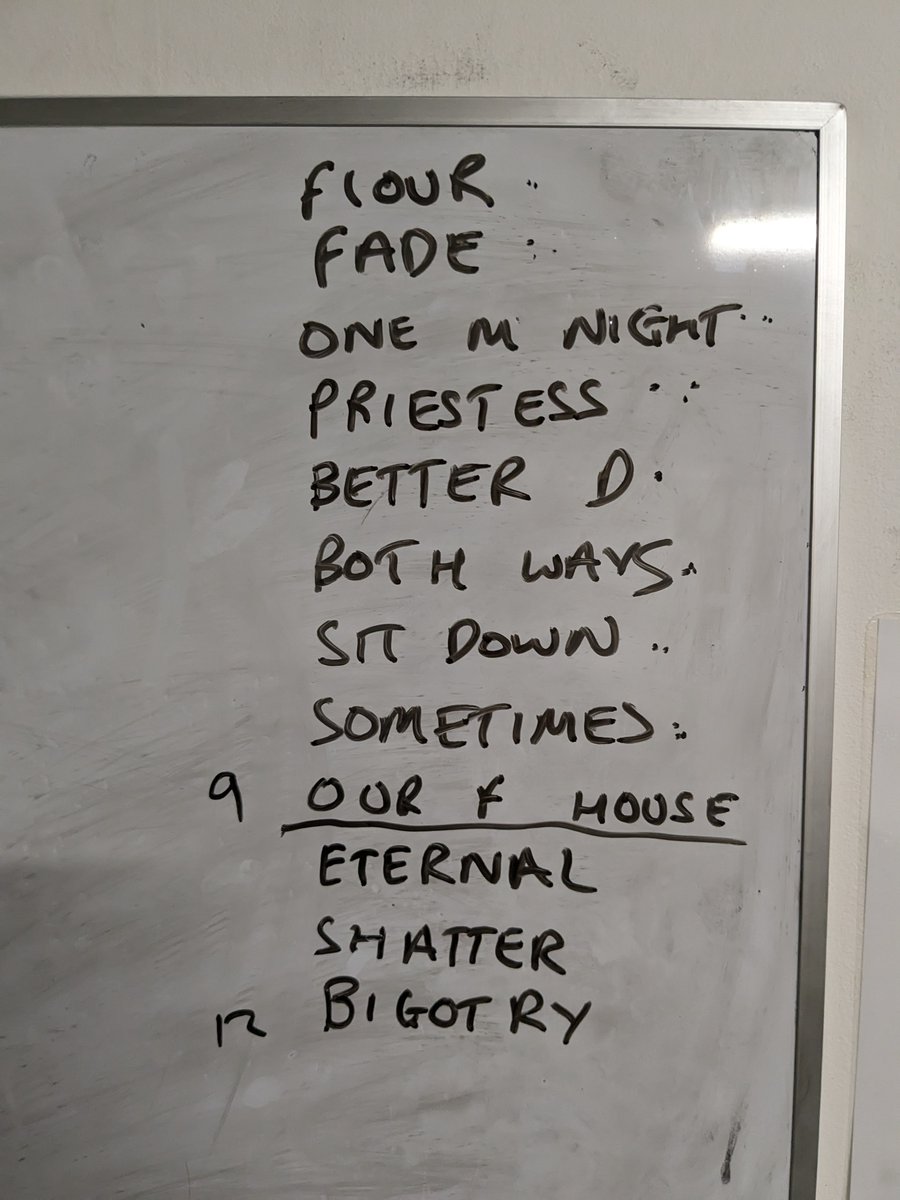 FLOUR ..
FADE :
ONE M NIGHT ...
PRIESTESS ....
BETTER D .
BOTH WAYS ...
SIT DOWN ..
SOMETIMES ...
9 OUR F HOUSE
ETERNAL
SHATTER
12 BIGOTRY